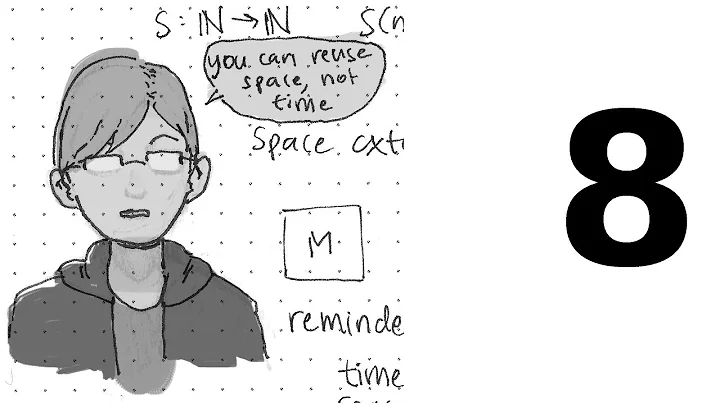 S: ℕ → ℕ S(n
you can reuse
space, not
time
Space ext
M
reminde
time
8